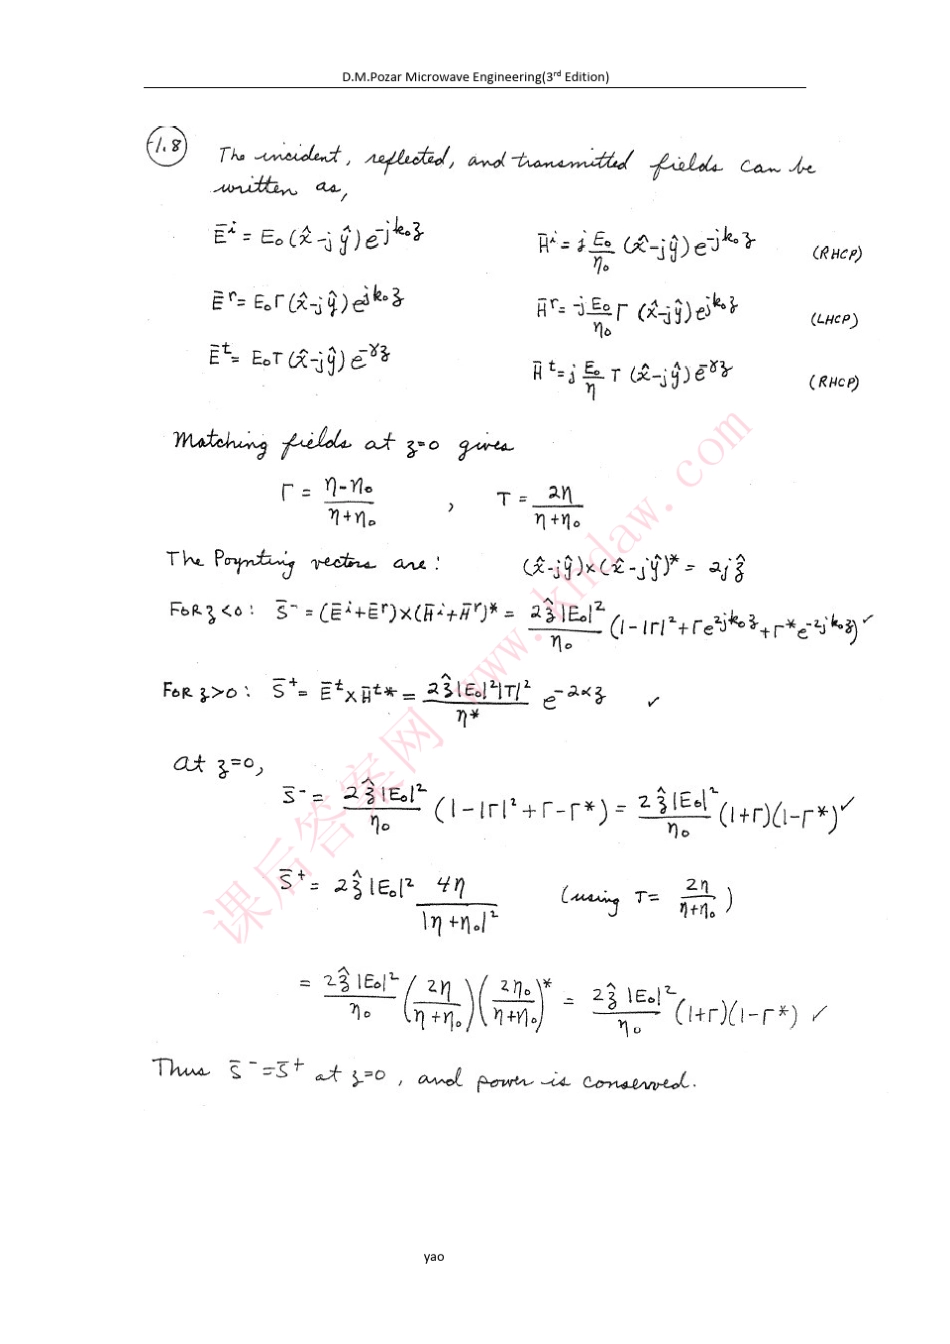 D.M.Pozar Microwave Engineering(3rd Edition)
1.8 The incident, reflected, and transmitted fields can be
written as,
Ēⁱ = E₀(x̂-jŷ)e^{-jk₀z} H̄ⁱ = j E₀/η₀ (x̂-jŷ)e^{-jk₀z} (RHCP)
Ēʳ = E₀Γ(x̂-jŷ)e^{jk₀z} H̄ʳ = -j E₀/η₀ Γ (x̂-jŷ)e^{jk₀z} (LHCP)
Ēᵗ = E₀T(x̂-jŷ)e^{-γz} H̄ᵗ = j E₀/η T (x̂-jŷ)e^{-γz} (RHCP)
Matching fields at z=0 gives
Γ = (η-η₀)/(η+η₀) , T = 2η/(η+η₀)
The Poynting vectors are: (x̂-jŷ)×(x̂-jŷ)* = 2jẑ
FOR z<0: S̄⁻ = (Ēⁱ+Ēʳ)×(H̄ⁱ+H̄ʳ)* = 2ẑ|E₀|²/η₀ (1-|Γ|²+Γe^{2jk₀z}+Γ*e^{-2jk₀z}) ✓
FOR z>0: S̄⁺ = Ēᵗ×H̄ᵗ* = 2ẑ|E₀|²|T|²/η* e^{-2αz} ✓
at z=0,
S̄⁻ = 2ẑ|E₀|²/η₀ (1-|Γ|²+Γ-Γ*) = 2ẑ|E₀|²/η₀ (1+Γ)(1-Γ*) ✓
S̄⁺ = 2ẑ|E₀|² 4η/|η+η₀|² (using T= 2η/(η+η₀))
= 2ẑ|E₀|²/η₀ (2η/(η+η₀))(2η₀/(η+η₀))* = 2ẑ|E₀|²/η₀ (1+Γ)(1-Γ*) ✓
Thus S̄⁻=S̄⁺ at z=0, and power is conserved.
课后答案网 www.khdaw.com
yao